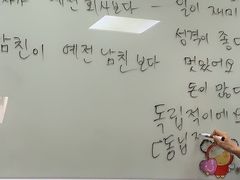 예전 회사보다 — 일이 재미
성격이 좋다
남친이 예전 남친보다 멋있어요
돈이 많다
독립적이에요
[동닙적